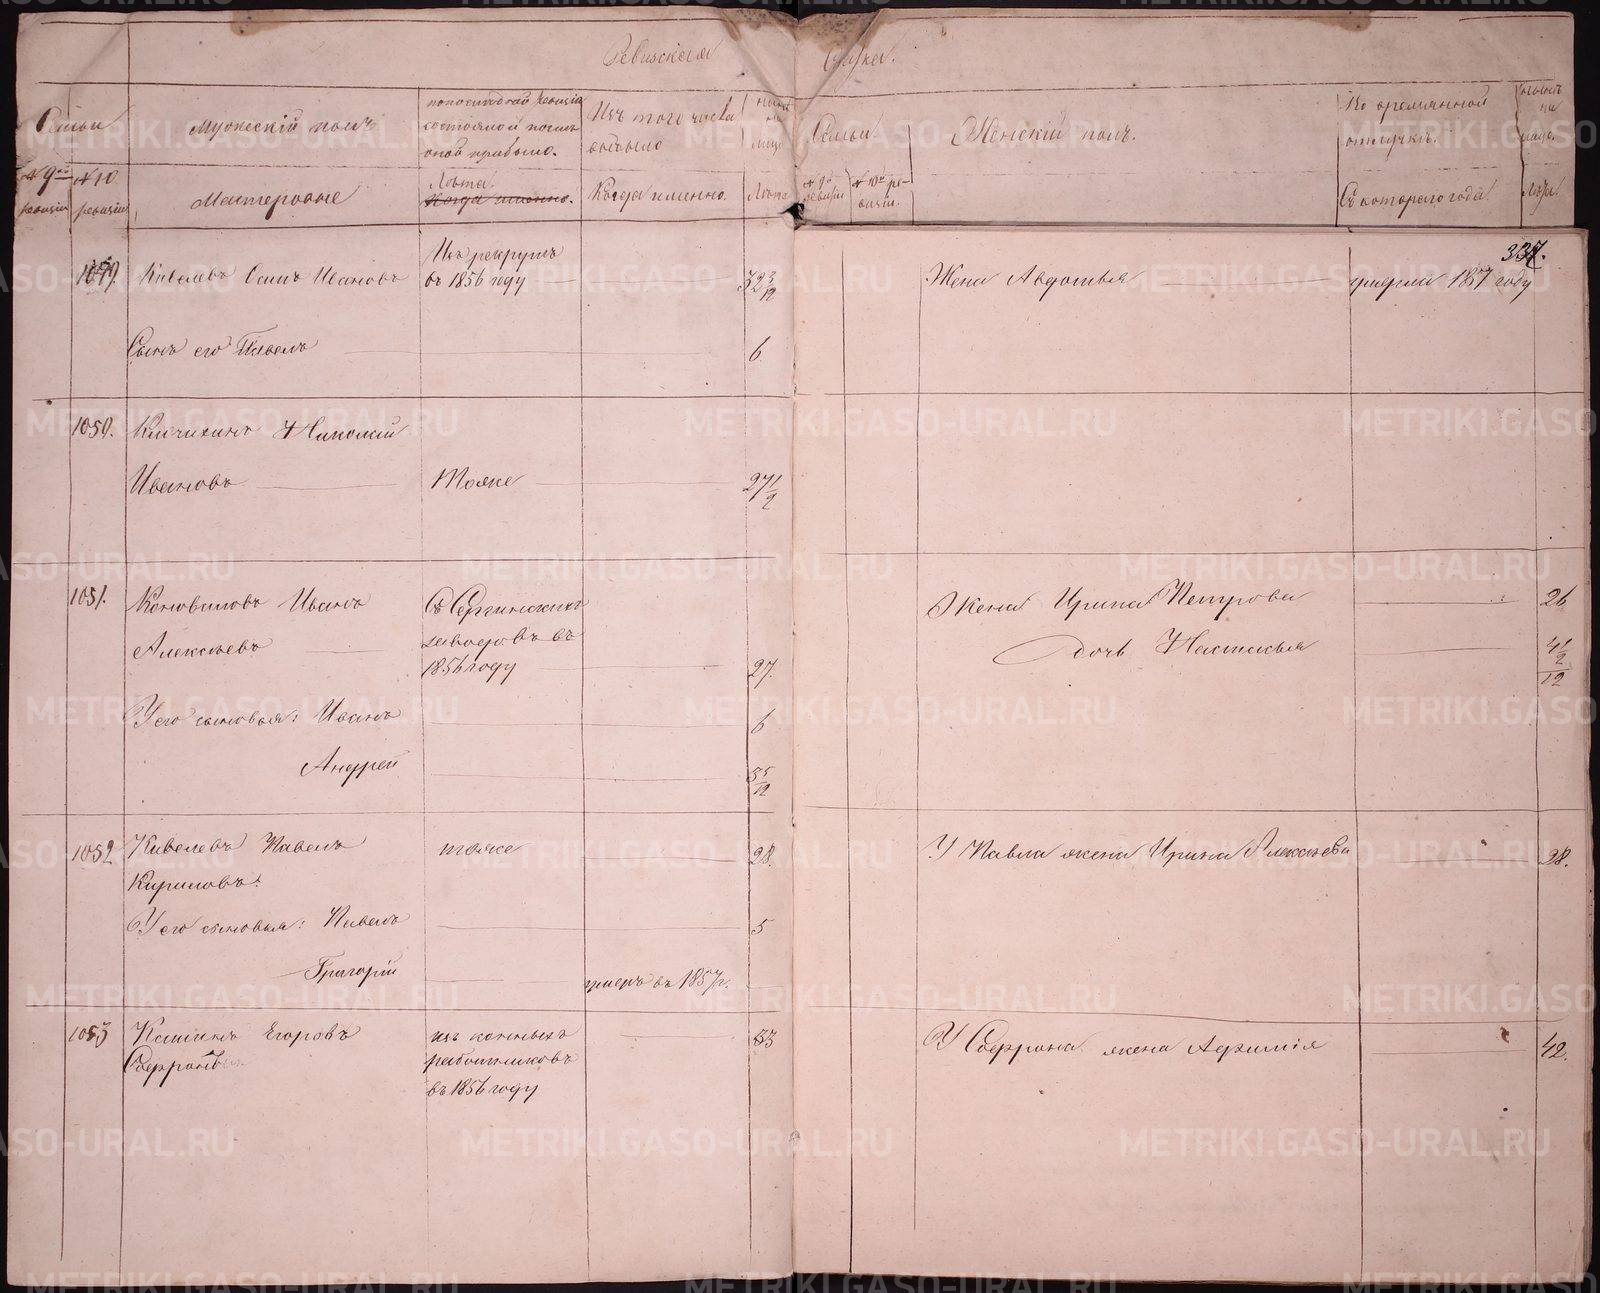 Ревизская Сказка.
Семьи
Мужеский полъ
по последней ревизiи
состояло и после
оной прибыло.
Изъ того числа
выбыло
лицо
Семьи
Женскiй полъ.
Во временной
отлучке.
лицо.
№ 9
ревизiи
№ 10
ревизiи
Мастеровые
Лѣта.
Когда именно.
Когда именно.
Лѣта
№ 9
ревизiи
№ 10 ре-
визiи.
Съ котораго года.
Лѣта.
337.
1049.
Кивелевъ Осипъ Ивановъ
Изъ рекрутъ
въ 1856 году
32 3/12
Жена Авдотья
умерла 1857 году
Сынъ его Павелъ
6
1050.
Клычихинъ Николай
Ивановъ
Тоже
27 1/2
1051.
Коноваловъ Иванъ
Алексеевъ
Съ Сергинскихъ
заводовъ въ
1856 году
27.
Жена Ирина Петрова
26
дочь Настасья
4 1/2
12
У его сыновья: Иванъ
6
Андрей
3 5/12
1052
Кивелевъ Павелъ
Кириловъ.
тоже
28.
У Павла жена Ирина Алексеева
28.
У его сыновья: Павелъ
5
Григорiй
умеръ въ 1857 г.
1053
Кашинъ Егоровъ
Софронъ
изъ конныхъ
работниковъ
въ 1856 году
33
У Софрона жена Афимiя
42.
METRIKI.GASO-URAL.RU